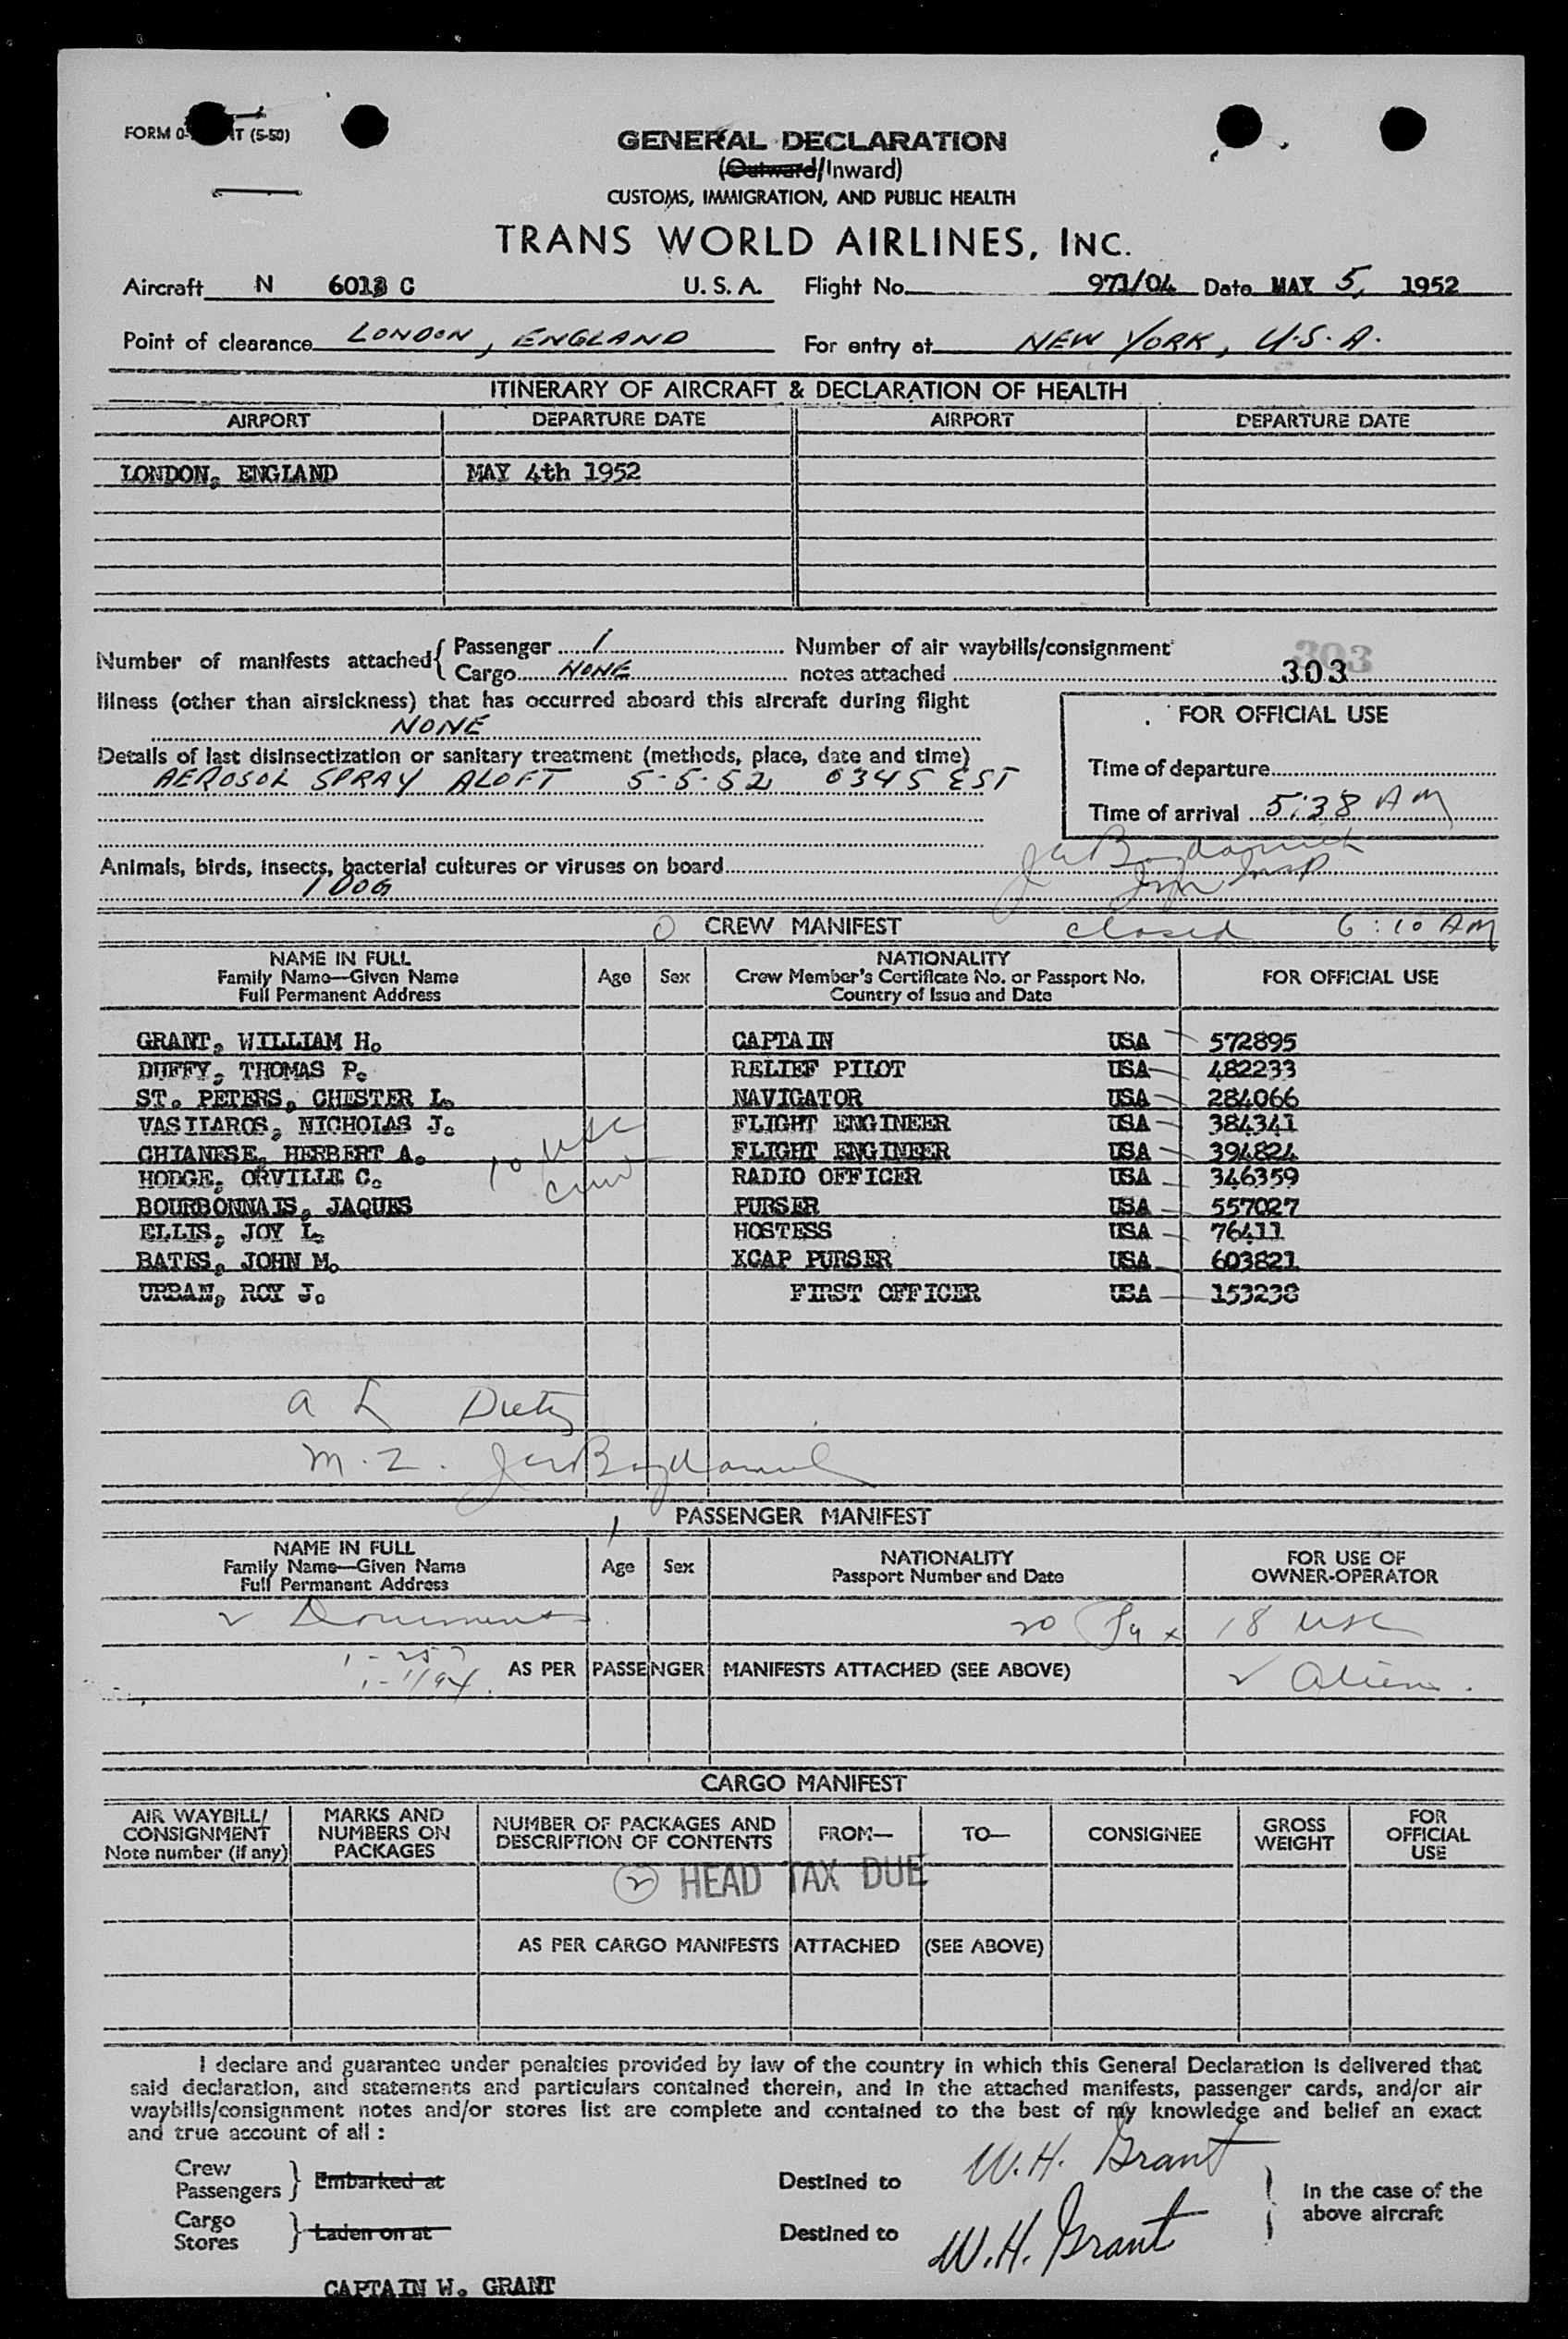 FORM 0- T (5-50)
GENERAL DECLARATION
(Outward/Inward)
CUSTOMS, IMMIGRATION, AND PUBLIC HEALTH
TRANS WORLD AIRLINES, INC.
Aircraft N 6013 C U.S.A. Flight No. 971/04 Date MAY 5, 1952
Point of clearance LONDON, ENGLAND For entry at NEW YORK, U.S.A.
ITINERARY OF AIRCRAFT & DECLARATION OF HEALTH
AIRPORT DEPARTURE DATE AIRPORT DEPARTURE DATE
LONDON, ENGLAND MAY 4th 1952
Number of manifests attached { Passenger 1 Number of air waybills/consignment 303
Cargo NONE notes attached 303
Illness (other than airsickness) that has occurred aboard this aircraft during flight
NONE
FOR OFFICIAL USE
Details of last disinsectization or sanitary treatment (methods, place, date and time)
AEROSOL SPRAY ALOFT 5-5-52 0345 EST
Time of departure
Time of arrival 5:38 AM
Animals, birds, insects, bacterial cultures or viruses on board
1 DOG
CREW MANIFEST closed 6:10 AM
NAME IN FULL
Family Name—Given Name
Full Permanent Address
Age Sex
NATIONALITY
Crew Member's Certificate No. or Passport No.
Country of Issue and Date
FOR OFFICIAL USE
GRANT, WILLIAM H. CAPTAIN USA 572895
DUFFY, THOMAS P. RELIEF PILOT USA 482233
ST. PETERS, CHESTER L. NAVIGATOR USA 284066
VASILAROS, NICHOLAS J. FLIGHT ENGINEER USA 384341
CHIANESE, HERBERT A. FLIGHT ENGINEER USA 394824
HODGE, ORVILLE C. RADIO OFFICER USA 346359
BOURBONNAIS, JAQUES PURSER USA 557027
ELLIS, JOY L. HOSTESS USA 76411
BATES, JOHN M. XCAP PURSER USA 603821
URBAN, ROY J. FIRST OFFICER USA 153238
10 USC
crew
PASSENGER MANIFEST
NAME IN FULL
Family Name—Given Name
Full Permanent Address
Age Sex
NATIONALITY
Passport Number and Date
FOR USE OF
OWNER-OPERATOR
2 Documents 20 18 USC
AS PER PASSENGER MANIFESTS ATTACHED (SEE ABOVE) 2 Aliens.
CARGO MANIFEST
AIR WAYBILL/
CONSIGNMENT
Note number (if any)
MARKS AND
NUMBERS ON
PACKAGES
NUMBER OF PACKAGES AND
DESCRIPTION OF CONTENTS
FROM— TO— CONSIGNEE
GROSS
WEIGHT
FOR
OFFICIAL
USE
2 HEAD TAX DUE
AS PER CARGO MANIFESTS ATTACHED (SEE ABOVE)
I declare and guarantee under penalties provided by law of the country in which this General Declaration is delivered that
said declaration, and statements and particulars contained therein, and in the attached manifests, passenger cards, and/or air
waybills/consignment notes and/or stores list are complete and contained to the best of my knowledge and belief an exact
and true account of all :
Crew
Passengers } Embarked at Destined to W.H. Grant
In the case of the
above aircraft
Cargo
Stores } Laden on at Destined to W.H. Grant
CAPTAIN W. GRANT